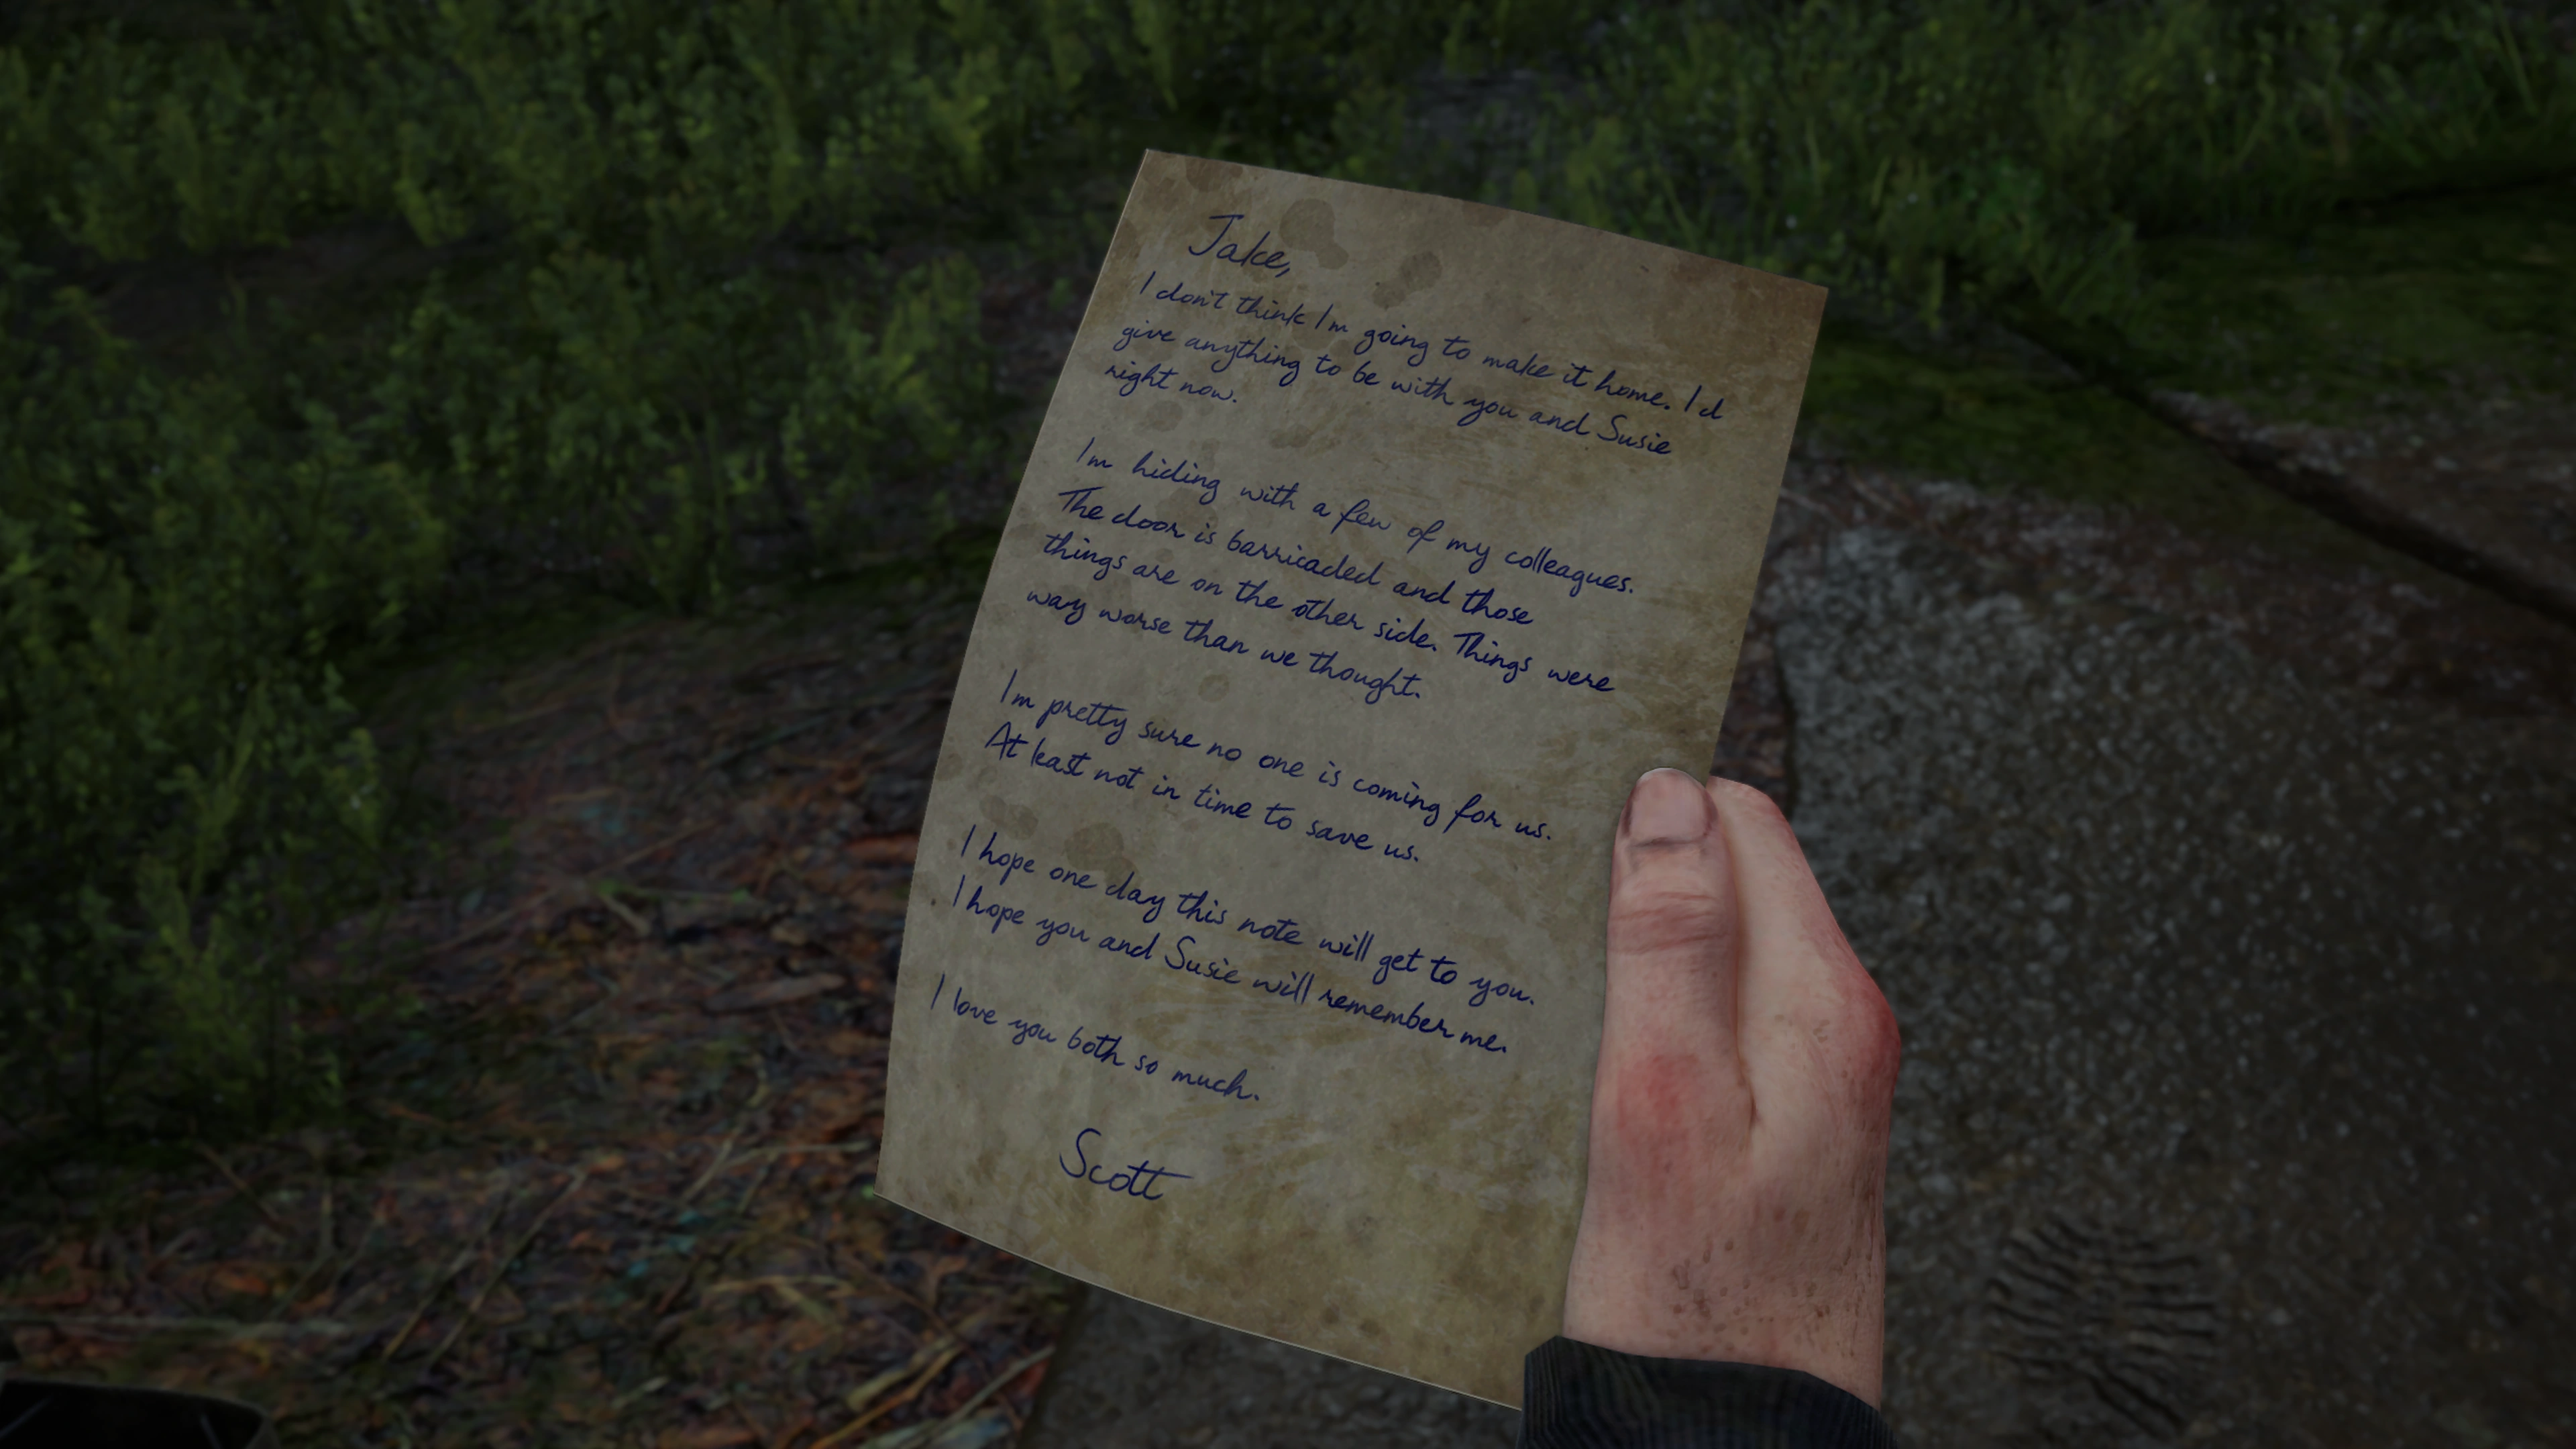 Jake,
I don't think I'm going to make it home. I'd
give anything to be with you and Susie
right now.
I'm hiding with a few of my colleagues.
The door is barricaded and those
things are on the other side. Things were
way worse than we thought.
I'm pretty sure no one is coming for us.
At least not in time to save us.
I hope one day this note will get to you.
I hope you and Susie will remember me.
I love you both so much.
Scott